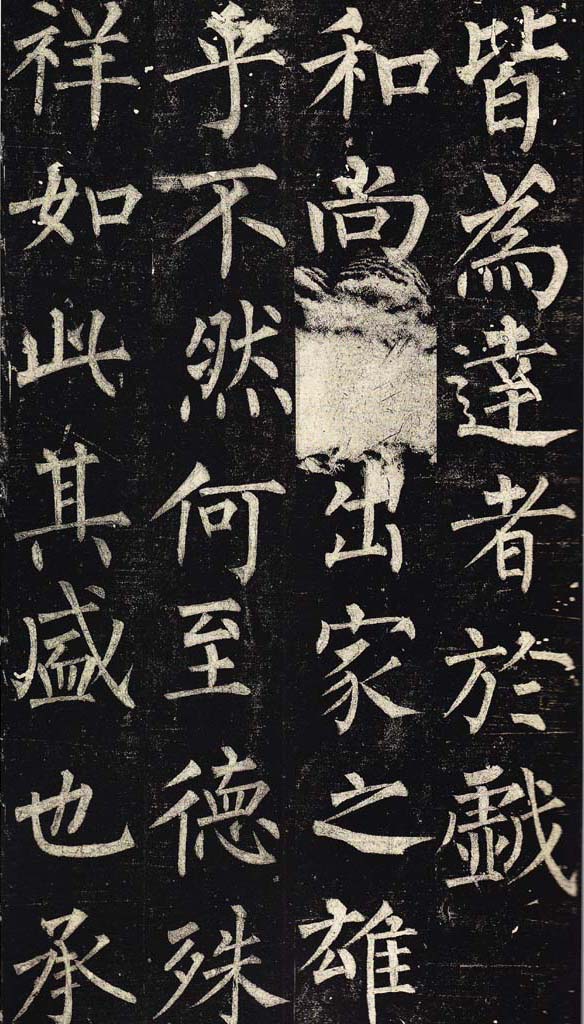 皆為達者於戲
和尚出家之雄
乎不然何至德殊
祥如此其盛也承